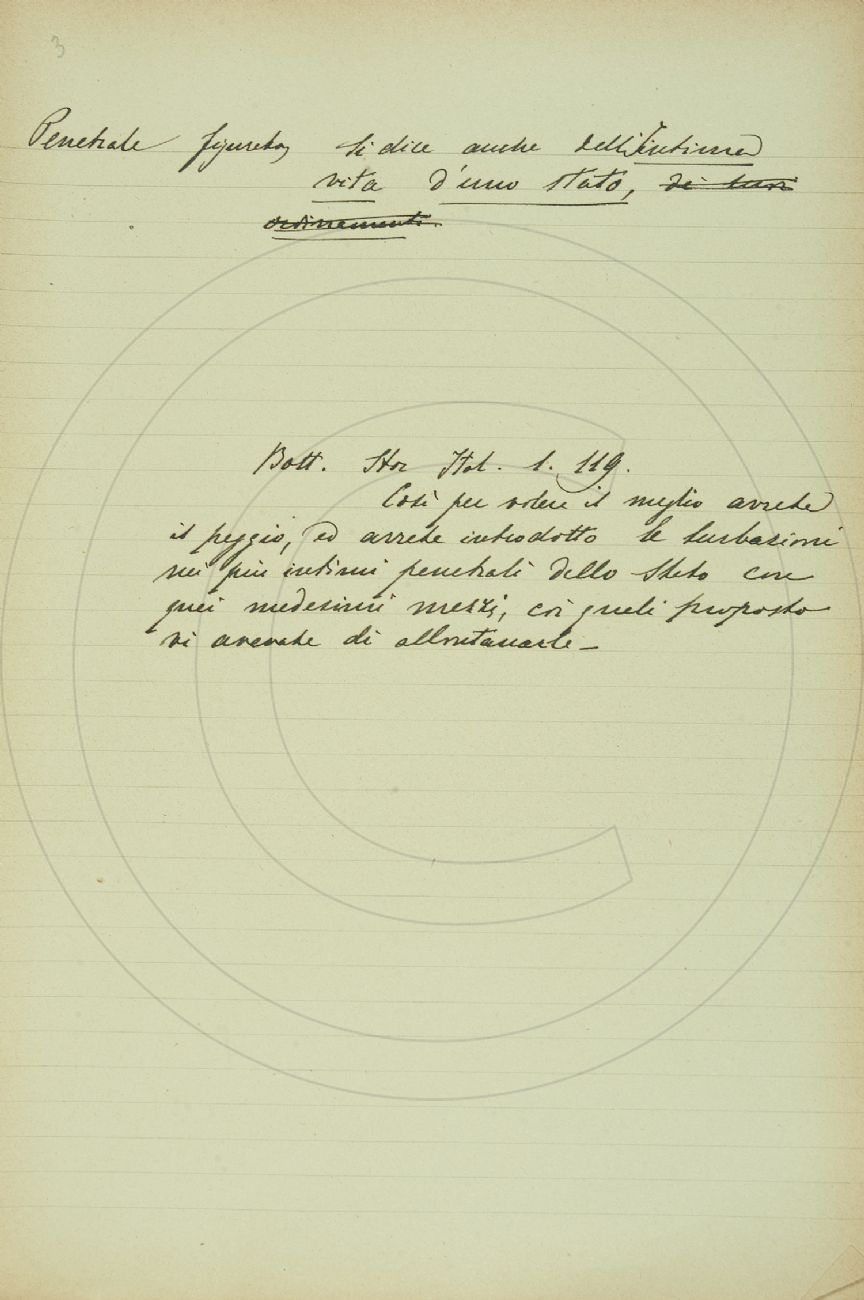 3
Penetrale figurato, si dice anche dell'intima
vita d'uno stato, dei suoi
ordinamenti.
Bott. Stor Ital. 1. 119.
Così per volere il meglio avrete
il peggio, ed avrete introdotto le turbazioni
nei più intimi penetrali dello Stato con
quei medesimi mezzi, coi quali proposto
vi avevate di allontanarle_